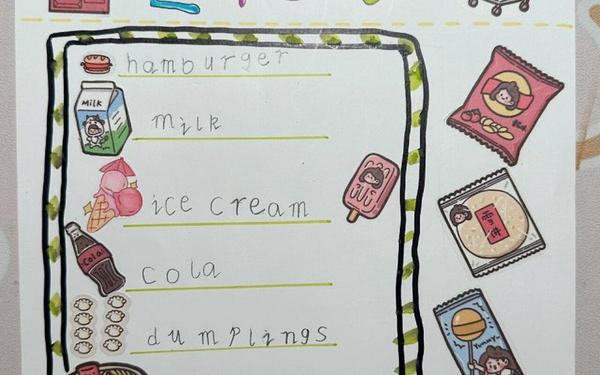 hamburger
MiLK
milk
ice cream
Cola
cola
dumplings
雪饼
Yummy~